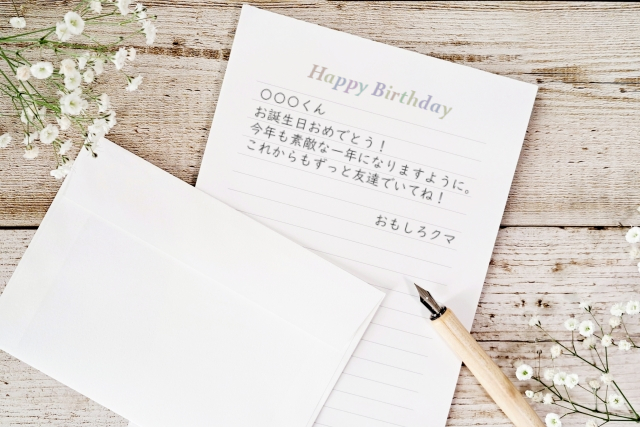 Happy Birthday
○○○くん
お誕生日おめでとう！
今年も素敵な一年になりますように。
これからもずっと友達でいてね！
おもしろクマ